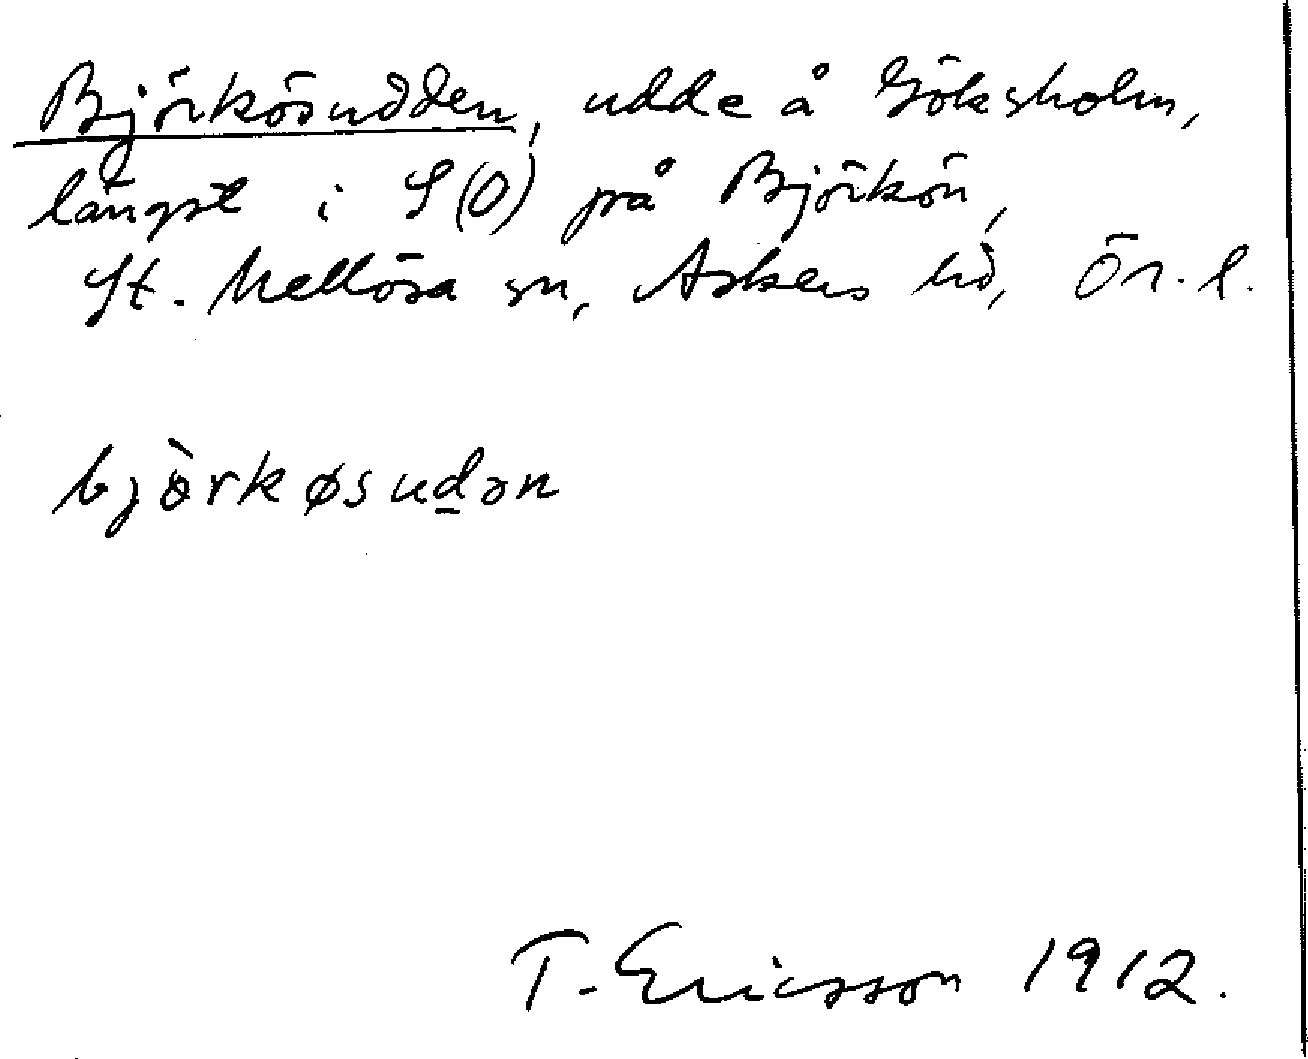 Björkösudden, udde å Göksholm,
längst i S(O) på Björkön,
St. Mellösa sn, Askers hd, Ör. l.
bjòrkøsud̠ən
T. Ericsson 1912.